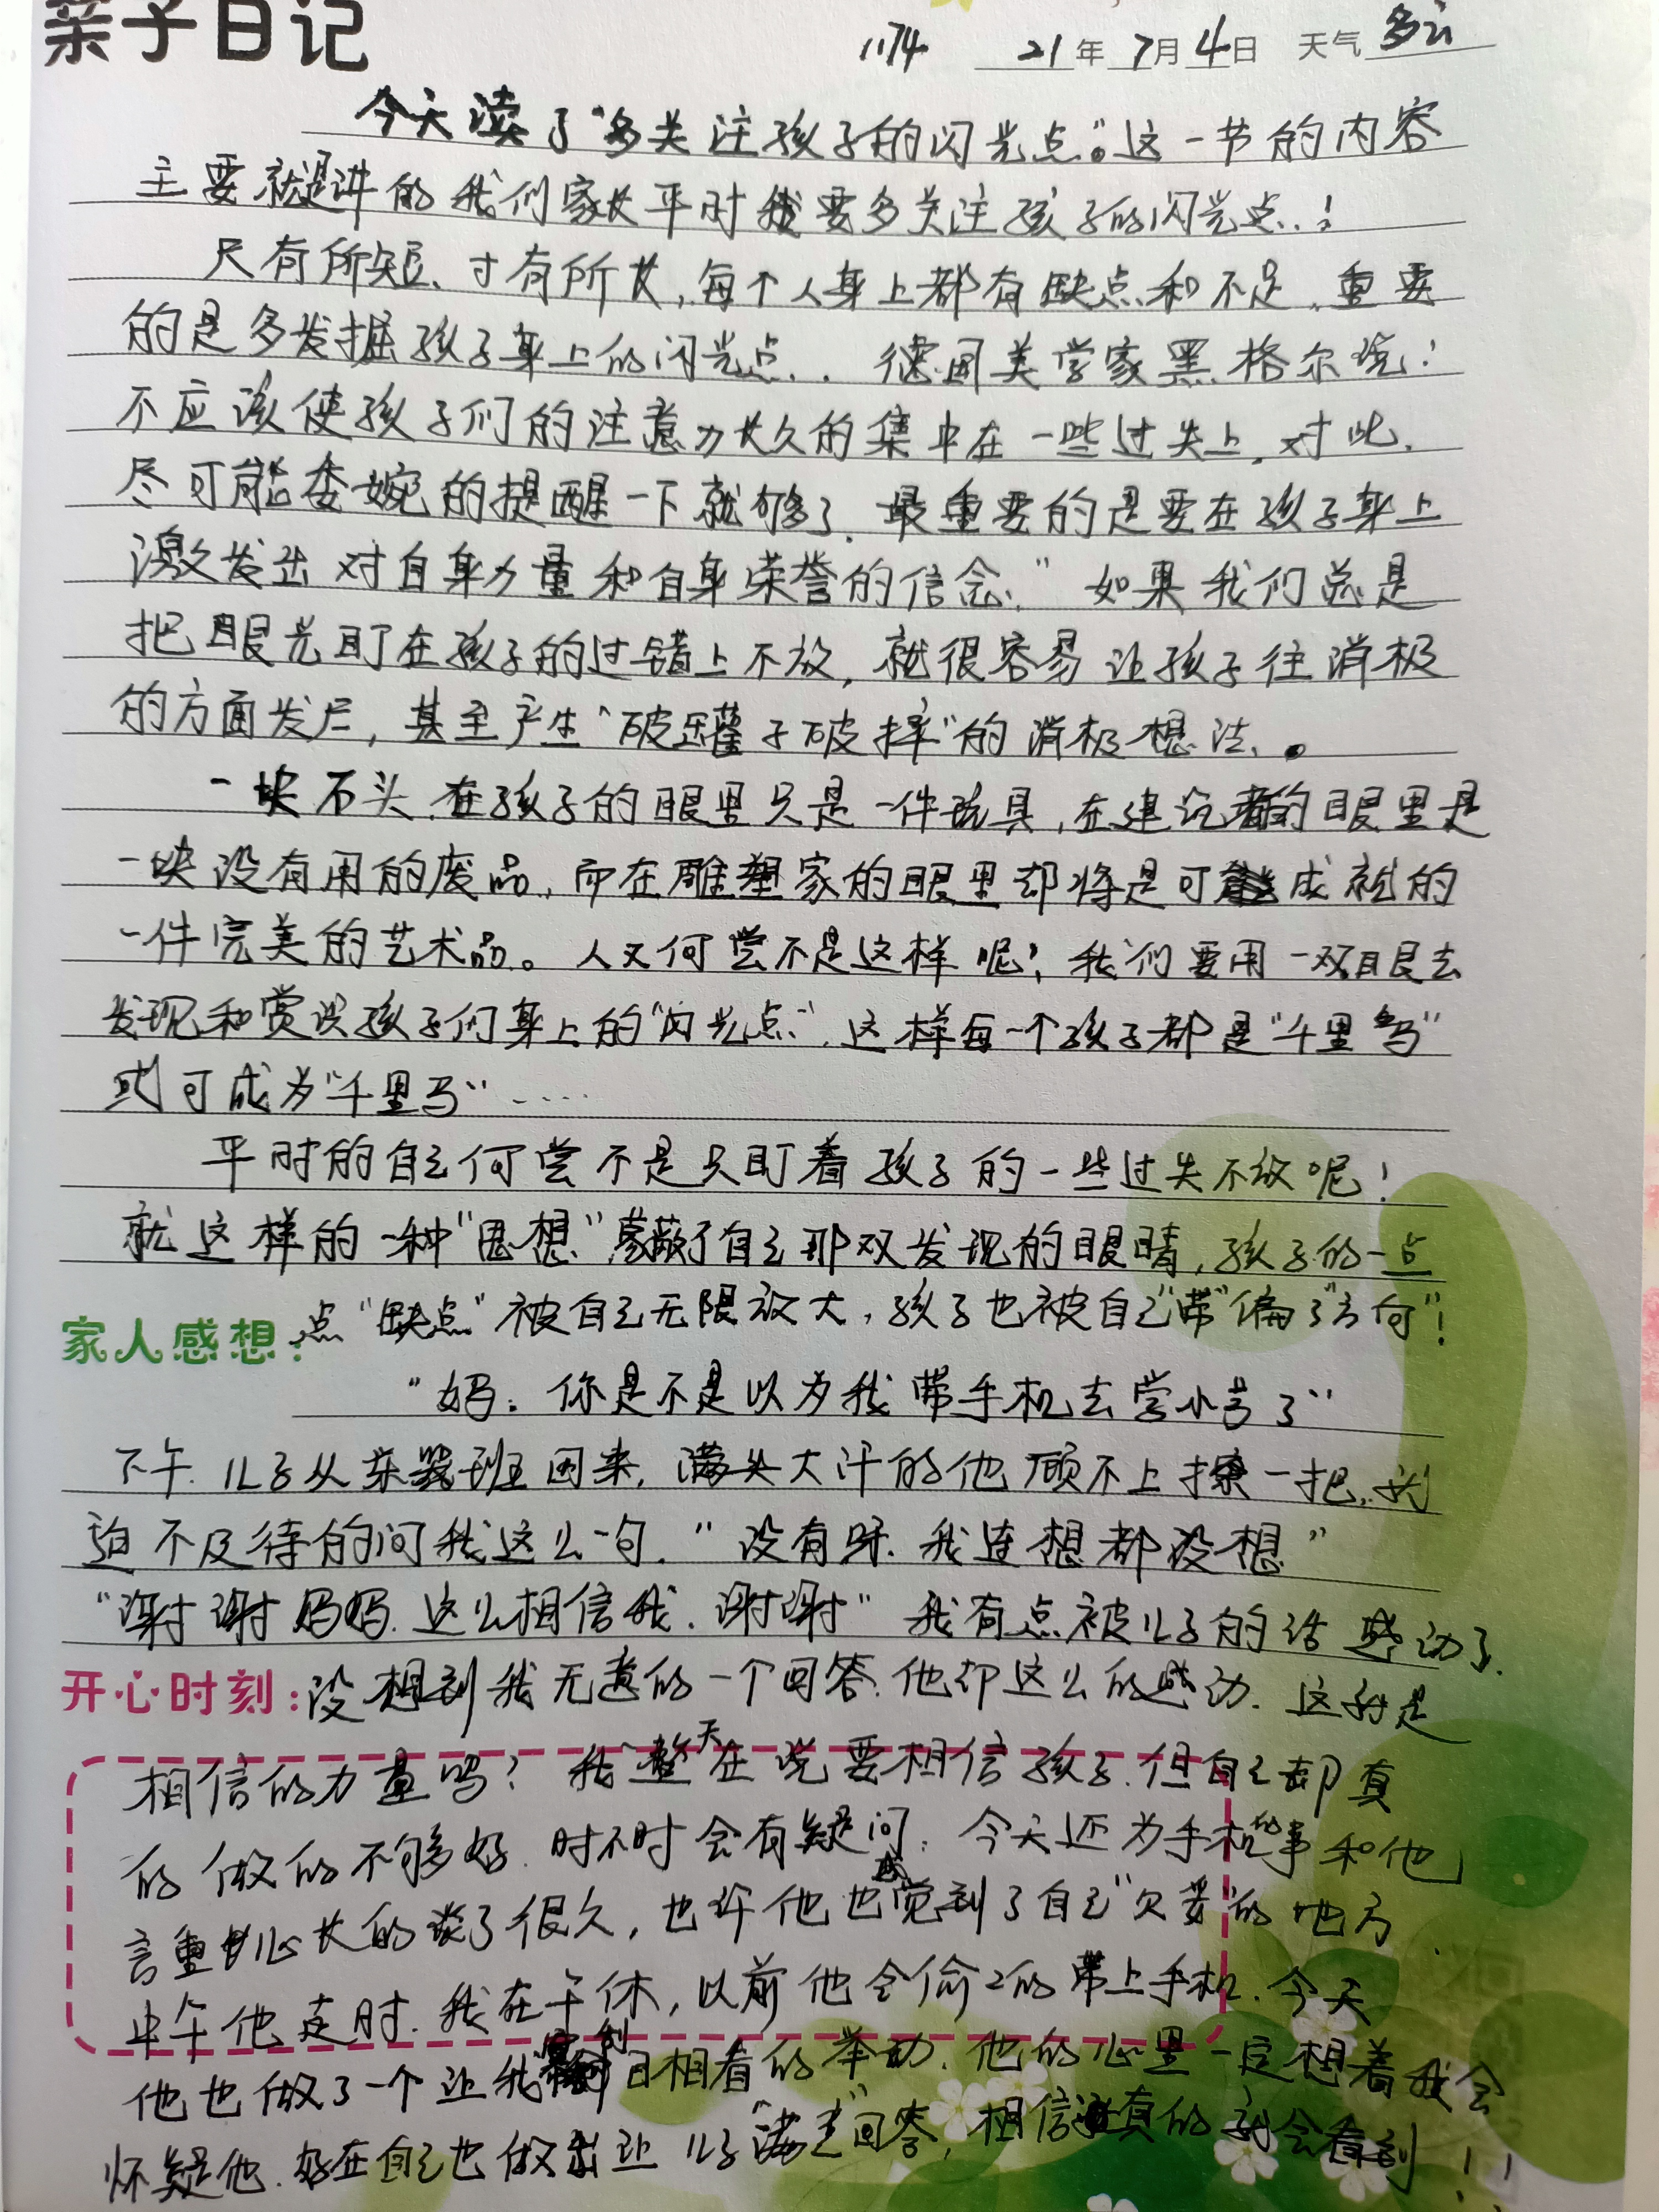 亲子日记
1174 21年7月4日 天气 多云
今天读了“多关注孩子的闪光点”。这一节的内容
主要就是讲的我们家长平时要多关注孩子的闪光点..!
尺有所短、寸有所长,每个人身上都有缺点和不足,重要
的是多发掘孩子身上的闪光点.. 德国美学家黑格尔说:
不应该使孩子们的注意力长久的集中在一些过失上,对此,
尽可能委婉的提醒一下就够了.最重要的是要在孩子身上
激发出对自身力量和自身荣誉的信念,”如果我们总是
把眼光盯在孩子的过错上不放,就很容易让孩子往消极
的方面发展,甚至产生“破罐子破摔”的消极想法。
一块石头,在孩子的眼里只是一件玩具,在建筑者的眼里是
一块没有用的废品,而在雕塑家的眼里却将是可能成就的
一件完美的艺术品。人又何尝不是这样呢?我们要用一双眼去
发现和赏识孩子们身上的“闪光点”,这样每一个孩子都是“千里马”
或可成为“千里马”……
平时的自己何尝不是只盯着孩子的一些过失不放呢!
就这样的一种“思想”蒙蔽了自己那双发现的眼睛,孩子的一点
家人感想: 点“缺点”被自己无限放大,孩子也被自己“带”偏了“方向”!
“妈:你是不是以为我带手机去学小号了”
下午.儿子从乐器班回来,满头大汗的他顾不上擦一把,就
迫不及待的问我这么一句.“没有呀.我连想都没想”
“谢谢妈妈.这么相信我.谢谢”我有点被儿子的话感动了.
开心时刻: 没想到我无意的一个回答.他却这么的感动.这就是
相信的力量吗?我整天在说要相信孩子.但自己却真
的做的不够好.时不时会有疑问.今天还为手机的事和他
言重心长的谈了很久,也许他也感觉到了自己“欠妥”的地方.
中午他走时.我在午休,以前他会偷偷的带上手机.今天
他也做了一个让我刮目相看的举动.他的心里一定想着我会
怀疑他.好在自己也做出让儿子“满意”回答,相信真的就会看到!!